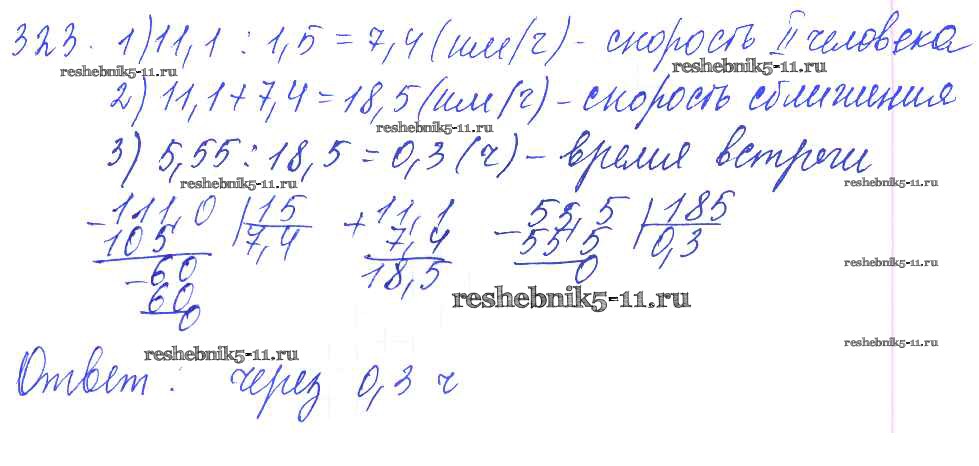 323. 1) 11,1 : 1,5 = 7,4 (км/ч) - скорость II человека
reshebnik5-11.ru reshebnik5-11.ru
2) 11,1 + 7,4 = 18,5 (км/ч) - скорость сближения
reshebnik5-11.ru
3) 5,55 : 18,5 = 0,3 (ч) - время встречи
reshebnik5-11.ru reshebnik5-11.ru
- 111,0 | 15 + 11,1 - 55,5 | 185
105 7,4 7,4 55 5 0,3
- 60 18,5 0 reshebnik5-11.ru
60 reshebnik5-11.ru
0
reshebnik5-11.ru reshebnik5-11.ru
Ответ : через 0,3 ч